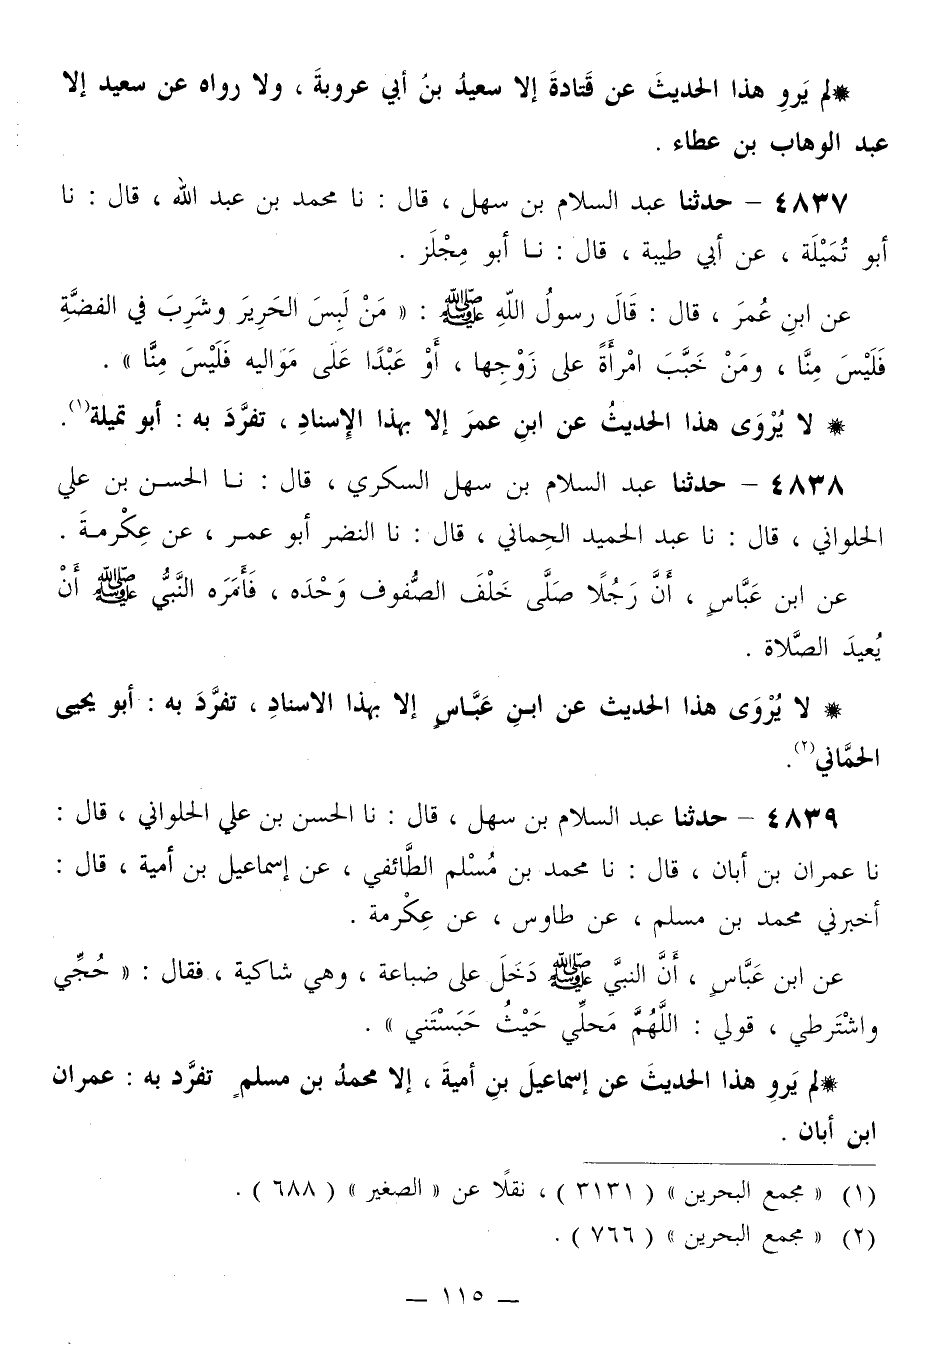 * لم يَروِ هذا الحديثَ عن قَتادةَ إلا سعيدُ بنُ أبي عروبةَ ، ولا رواه عن سعيد إلا
عبد الوهاب بن عطاء .
٤٨٣٧ – حدثنا عبد السلام بن سهل ، قال : نا محمد بن عبد الله ، قال : نا
أبو تُمَيْلَة ، عن أبي طيبة ، قال : نـا أبو مِجْلَز .
عن ابنِ عُمرَ ، قال : قَالَ رسولُ اللهِ ﷺ : « مَنْ لَبِسَ الحَرِيرَ وشَرِبَ في الفضَّةِ
فَلَيْسَ مِنَّا ، ومَنْ خَبَّبَ امْرأَةً على زَوْجِها ، أَوْ عَبْدًا عَلَى مَوَاليه فَلَيْسَ مِنَّا » .
* لا يُرْوَى هذا الحديثُ عن ابنِ عمرَ إلا بهذا الإِسنادِ ، تفرَّدَ به : أبو تميلة(١).
٤٨٣٨ – حدثنا عبد السلام بن سهل السكري ، قال : نـا الحسـن بن علي
الحلواني ، قال : نا عبد الحميد الحِماني ، قال : نا النضر أبو عمـر ، عن عِكْرمـةَ .
عن ابن عَبَّاسٍ ، أَنَّ رَجُلًا صَلَّى خَلْفَ الصُّفوف وَحْدَه ، فَأَمَرَه النَّبيُّ ﷺ أَنْ
يُعيدَ الصَّلاة .
* لا يُرْوَى هذا الحديث عن ابـنِ عَبَّـاسٍ إلا بهذا الاسنادِ ، تفرَّدَ به : أبو يحيى
الحمَّاني(٢).
٤٨٣٩ – حدثنا عبد السلام بن سهل ، قال : نا الحسن بن علي الحلواني ، قال :
نا عمران بن أبان ، قال : نا محمد بن مُسْلم الطَّائفي ، عن إسماعيل بن أمية ، قال :
أخبرني محمد بن مسلم ، عن طاوس ، عن عِكْرمة .
عن ابن عَبَّاسٍ ، أَنَّ النبيَّ ﷺ دَخَلَ على ضباعة ، وهي شاكية ، فقال : « حُجِّي
واشْتَرطي ، قولي : اللَّهُمَّ مَحلِّي حَيْثُ حَبَسْتَني » .
* لم يَروِ هذا الحديثَ عن إسماعيلَ بنِ أميةَ ، إلا محمدُ بن مسلمٍ تفرَّد به : عمران
ابن أبان .
(١) « مجمع البحرين » ( ٣١٣١ ) ، نقلًا عن « الصغير » ( ٦٨٨ ) .
(٢) « مجمع البحرين » ( ٧٦٦ ) .
– ١١٥ –